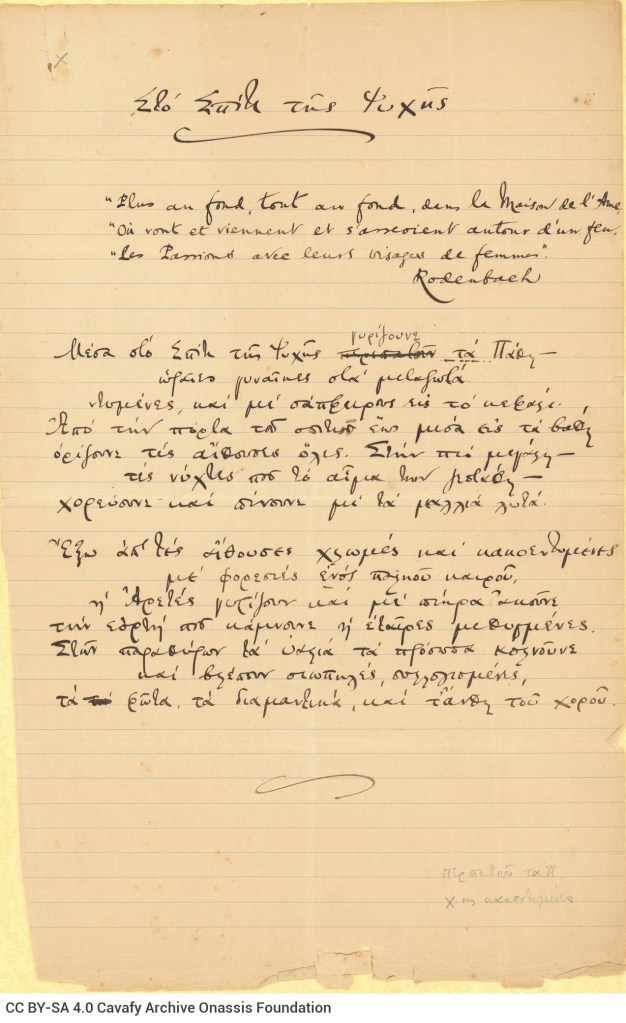 Στό Σπίτι τῆς Ψυχῆς
"Plus au fond, tout au fond, dans la Maison de l'Ame,
"Où vont et viennent et s'asseoient autour d'un feu,
"Les Passions avec leurs visages de femmes".
Rodenbach
γυρίζουνε
Μέσα στό Σπίτι τῆς Ψυχῆς περιπατοῦν τά Πάθη —
ὡραῖες γυναῖκες στά μεταξωτά
ντυμένες, καί μέ σάπφειρους εἰς τό κεφάλι.
Ἀπό τήν πόρτα τοῦ σπιτιοῦ ἕως μέσα εἰς τά βάθη
ὁρίζουνε τές αἴθουσες ὅλες. Στήν πιό μεγάλη —
τές νύχτες πού τό αἷμα των
χορεύουνε καί πίνουνε μέ τά μαλλιά λυτά.
Ἔξω ἀπ' τές αἴθουσες, χλωμές καί κακοεντυμένες
μέ φορεσιές ἑνός παληοῦ καιροῦ,
ἡ Ἀρετές γυρίζουν καί μέ πίκρα ἀκοῦνε
τήν ἑορτή πού κάμνουνε ἡ ἑταῖρες μεθυσμένες.
Στῶν παραθύρων τά ὑαλιά τά πρόσωπα κολνοῦνε
καί βλέπουν σιωπηλές, συλλογισμένες,
τά φῶτα, τά διαμαντικά, καί τἄνθη τοῦ χοροῦ.
περπατοῦν τα Π.
CC BY-SA 4.0 Cavafy Archive Onassis Foundation